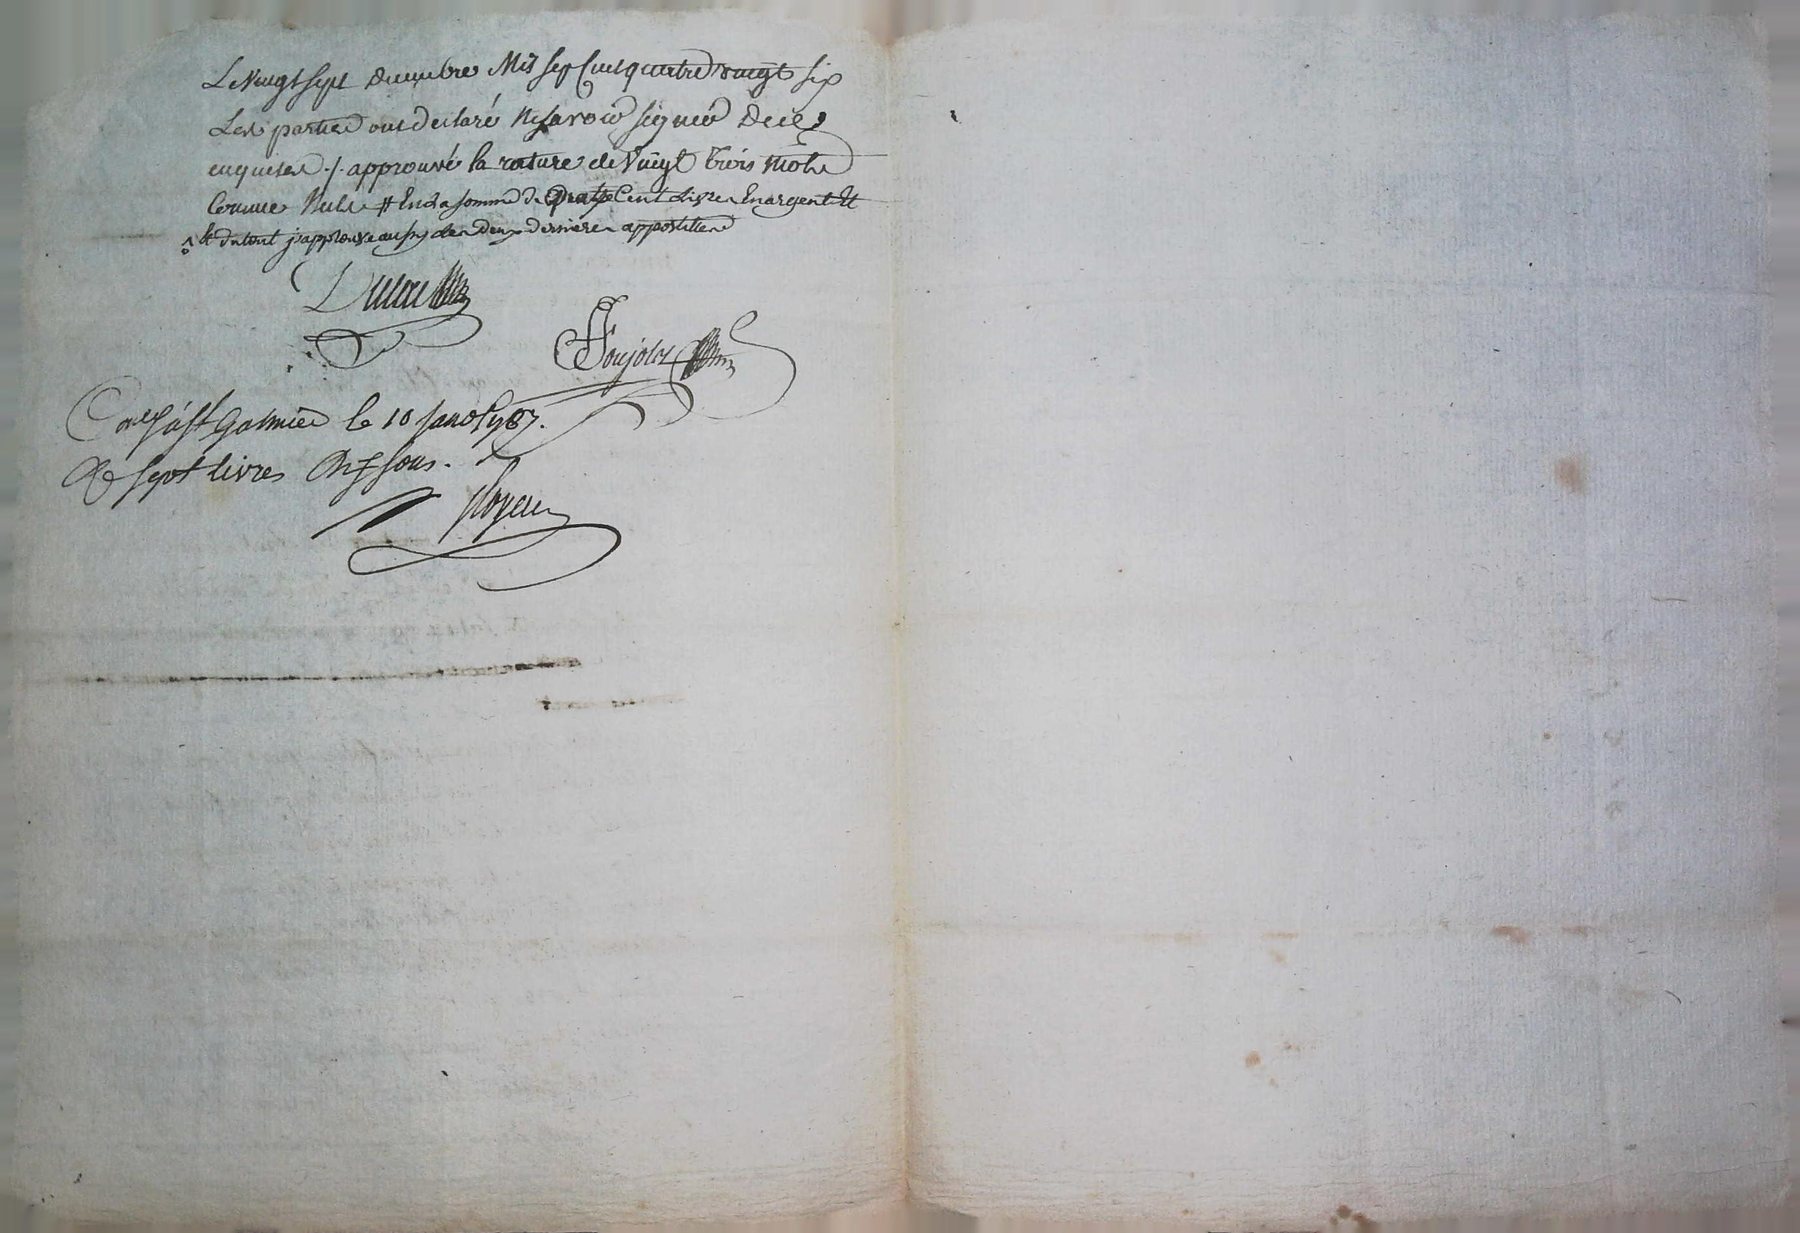 Le Vingt sept decembre Mil sep Cent quattre vingt six
Les parties ont declaré Ne savoir signer De ce
enquises ./. approuvé la rature de Vingt trois mots
Comme Nuls # En la somme de quatre Cent Livres En argent Et
Et du tout j'approuve aussy les deux dernieres appostilles
Poujolz
à st Galmier le 10 janv 1787.
R sept livres dix sous.